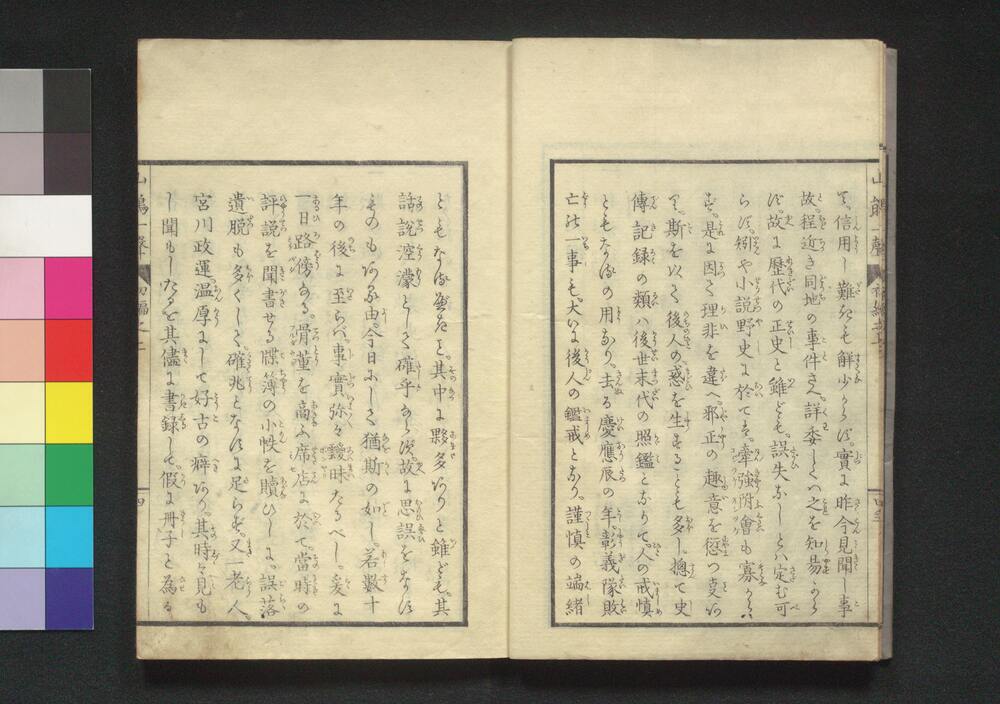 て。信用し難きも鮮少からず。實に昨今見聞し事
故。程近き同地の事件さへ。詳委しくハ之を知易から
ず。故に歴代の正史と雖ども。誤失なしとハ定む可
らず。矧や小説野史に於てを。牽強附會も寡からず
是に因て理非を違へ。邪正の趣意を愆つ
て。斯を以て後人の惑を生ずることも多し。總て史
傳記録の類ハ後世末代の照鑑となりて。人の戒慎
ともなるの用なり。去る慶應辰の年。彰義隊敗
亡の一事も。大いに後人の鑑戒となり。謹慎の端緒
山鵑一聲 初編之上 四
ともなる其中に夥多ありと雖ども。其
話説溟濛として確乎ならず。故に思誤をなす
ものもある由。今日にして猶斯の如し。若數十
年の後に至らバ。事實弥々曖昧たるべし。爰に
一日路傍なる。骨董を商ふ席店に於て。當時の
評説を聞書せる牒簿の小帙を贖ひしに。誤落
遺脱も多くして。確兆となすに足らず。又一老人。
宮川政運。温厚にして好古の癖あり。其時々見も
し聞もしたるを其儘に書録して。假に冊子と為る